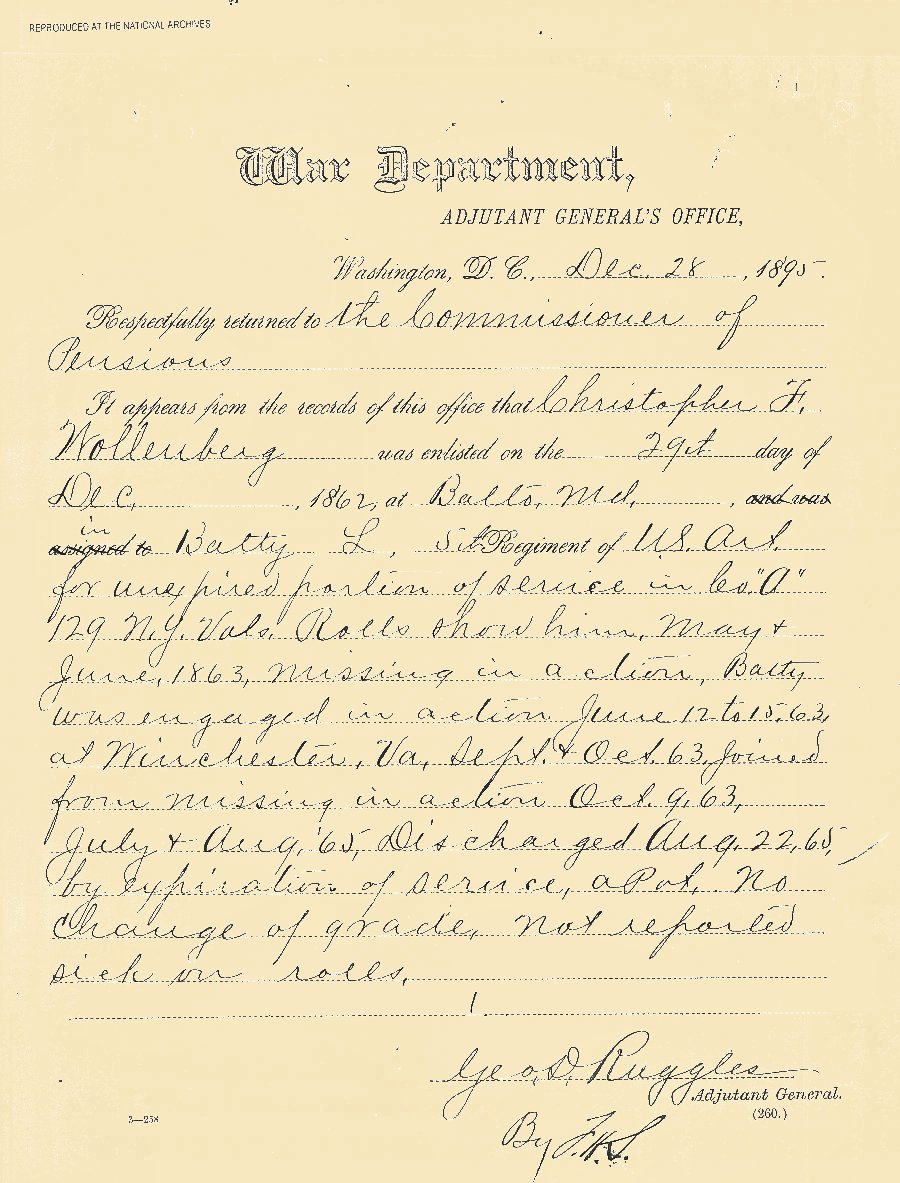 REPRODUCED AT THE NATIONAL ARCHIVES
War Department,
ADJUTANT GENERAL'S OFFICE,
Washington, D. C., Dec. 28, 1895.
Respectfully returned to the Commissioner of
Pensions
It appears from the records of this office that Christopher F.
Wollenberg was enlisted on the 29th day of
Dec., 1862, at Balto, Md., and was
in
assigned to Batty L, 5th Regiment of U.S. Art.
for unexpired portion of service in Co. "A"
129 N.Y. Vols. Rolls show him, May &
June, 1863, missing in action, Batty
was engaged in action June 12 to 15, 63,
at Winchester, Va, Sept. & Oct. 63, Joined
from missing in action Oct. 9, 63,
July & Aug, '65, Discharged Aug. 22, 65,
by expiration of service, a Pvt. No
change of grade, not reported
sick on rolls.
Geo. D. Ruggles
Adjutant General.
(260.)
3—258
By F.K.S.